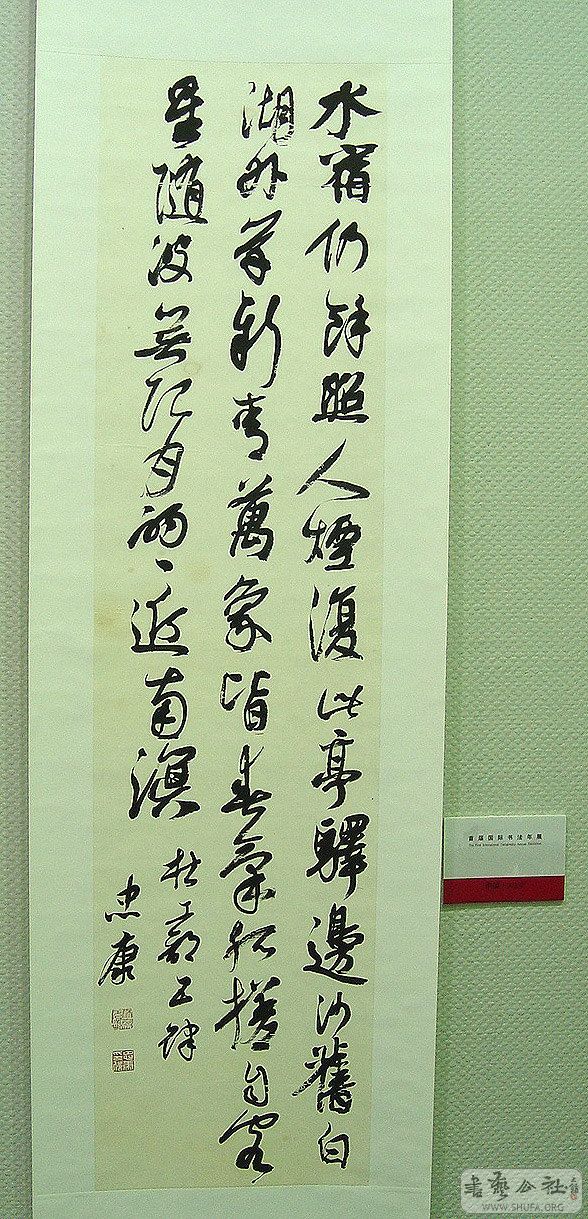 水宿仍餘照人煙復此亭驛邊沙舊白
湖外草新青萬象皆春氣孤槎自客
星隨波無限月的〻近南溟
杜工部五律
忠康
首届国际书法年展
The First International Calligraphy Annual Exhibition
書藝公社
WWW.SHUFA.ORG